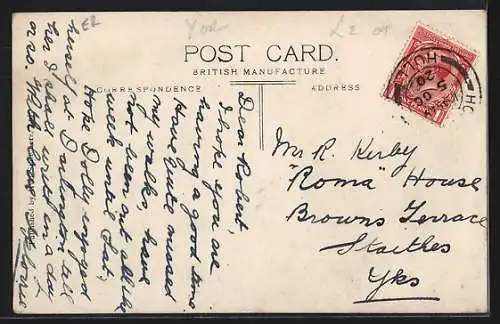 ER
POST CARD.
BRITISH MANUFACTURE
CORRESPONDENCE
ADDRESS
Dear Robert,
I hope you are
having a good time.
Have quite missed
my walks, have
not been out all the
week until Sat.
Hope Dolly enjoyed
herself at Darlington tell
her I shall write in a day
or so. With love
Mr R. Kirby
"Roma" House
Browns Terrace
Staithes
Yks
HULL